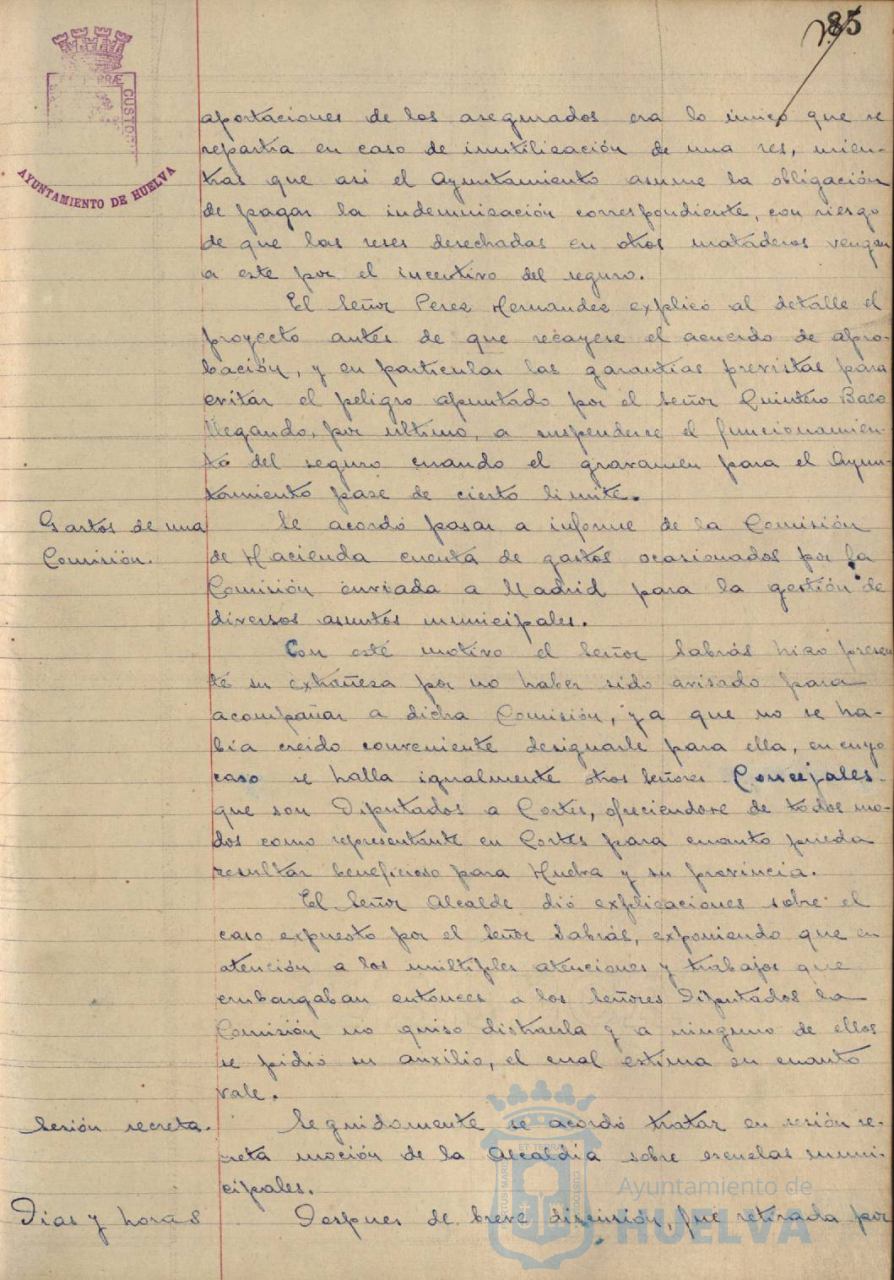 85
AYUNTAMIENTO DE HUELVA
aportaciones de los asegurados era lo único que se
repartia en caso de inutilización de una res, mien-
tras que asi el Ayuntamiento asume la obligación
de pagar la indemnización correspondiente, con riesgo
de que las reses desechadas en otros mataderos vengan
a este por el incentivo del seguro.
El Señor Perez Hernandez explicó al detalle el
proyecto antes de que recayese el acuerdo de apro-
bación, y en particular las garantias previstas para
evitar el peligro apuntado por el Señor Quintero Baco
llegando, por último, a suspenderse el funcionamien-
to del seguro cuando el gravamen para el Ayun-
tamiento pase de cierto limite.
Gastos de una
Comisión.
Se acordó pasar a informe de la Comisión
de Hacienda cuenta de gastos ocasionados por la
Comisión enviada a Madrid para la gestión de
diversos asuntos municipales.
Con este motivo el Señor Sabrás hizo presen
te su extrañeza por no haber sido avisado para
acompañar a dicha Comisión, ya que no se ha-
bía creido conveniente designarle para ella, en cuyo
caso se halla igualmente otros Señores Concejales
que son Diputados a Cortes, ofreciendose de todos mo-
dos como representante en Cortes para cuanto pueda
resultar beneficioso para Huelva y su provincia.
El Señor Alcalde dió explicaciones sobre el
caso expuesto por el Señor Sabrás, exponiendo que en
atención a los multiples atenciones y trabajos que
embargaban entonces a los Señores Diputados la
Comisión no quiso distraerla y a ninguno de ellos
se pidió su auxilio, el cual estima en cuanto
vale.
Sesión secreta.
Seguidamente se acordó tratar en sesión se-
creta moción de la Alcaldía sobre escuelas muni-
cipales.
Dias y horas
Despues de breve discusión, fue retirada por
Ayuntamiento de
HUELVA